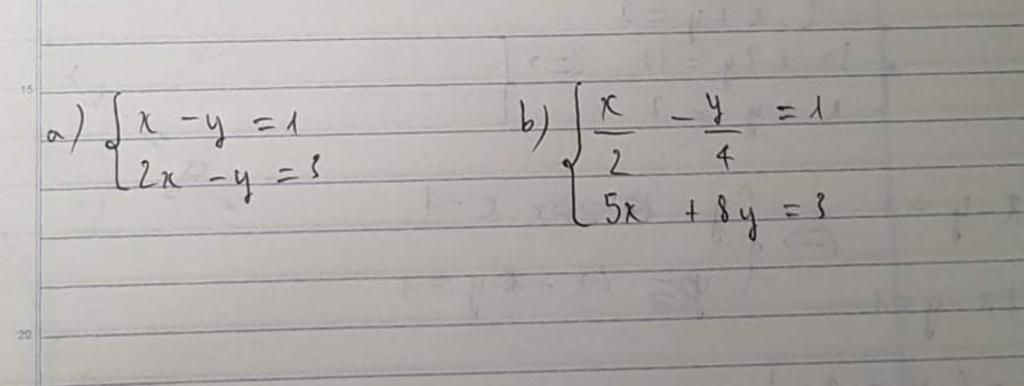 15
a) { x - y = 1
2x - y = 3
b) { x/2 - y/4 = 1
5x + 8y = 3
20